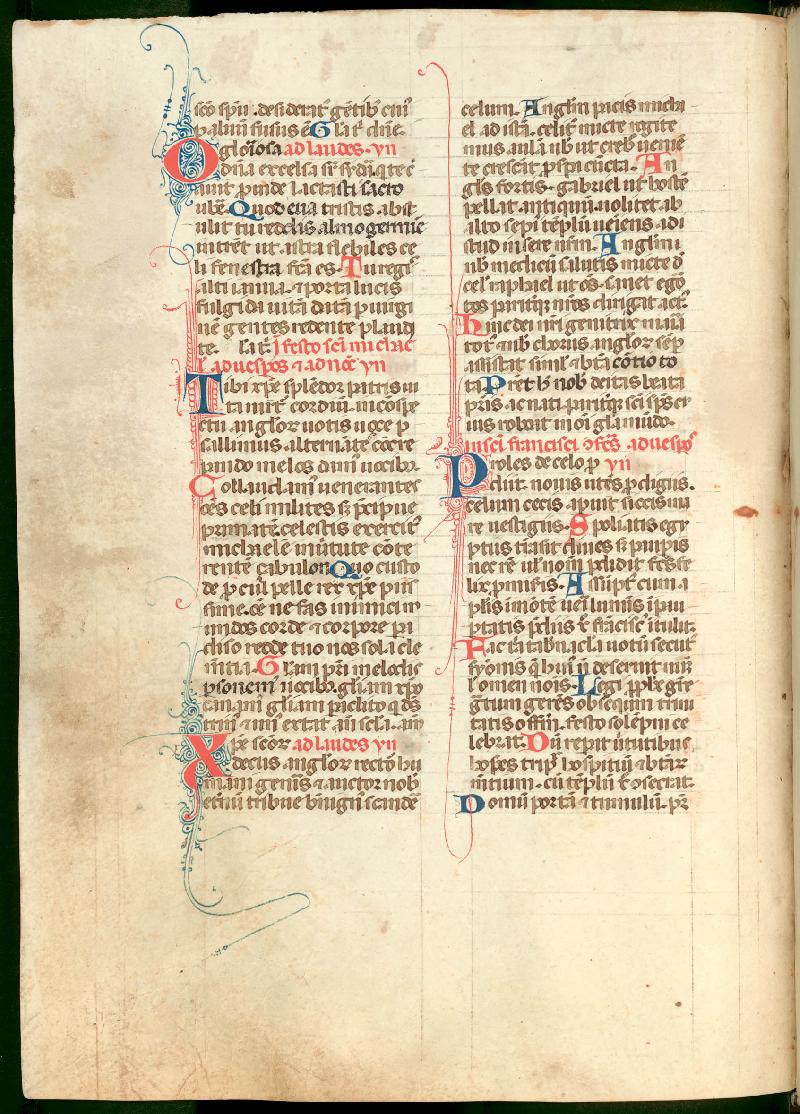 sc̄o sp̄u . desiderat̄ gētib᷒ cui᷒
palmū fusus ē G la tͥ dn̄e.
O glōiosa ad laudes . yn̄
dn̄a excelsa sr̄ sydā q te c̄
auit puide lactasti sacro
ubē. Quod eua tristis abst
ulit tu reddis almo germīe
intrēt ut astra flebiles ce
li fenestra fc̄a es. Tu regͥ
alti ianua . ⁊ porta lucis
fulgida uitā datā p uirgi
nē gentes redente plaud
te. la tͥ I festo sc̄i michael
ad uesp̄os ⁊ ad noc̄ yn̄
Tibi xp̄e splēdor patris ui
ta uirt᷒ cordiū. in cōspe
ctu anglor̄ uotis uoce p
sallimus. alternātes cōcre
pando melos dam᷒ uocib᷒.
Collaudam᷒ uenerantes
oēs celi milites. s; p̄cipue
primatē. celestis exercit᷒
michaelē īuirtute cōte
rentē zabulon. Quo custo
de p cul pelle rex xp̄e piis
sime. oē nefas inimici m
undos corde ⁊ corpore pa
diso redde tuo nos sola cle
mētia. Gl̄am pr̄i melodis
psonem᷒ uocib᷒. gl̄iam xp̄o
canam᷒ gl̄iam paclito q ds̄
trin᷒ ⁊ un᷒ extat an̄ scl̄a. am̄
Xp̄e sc̄or̄ ad laudes yn̄
decus anglor̄ rector hu
mani gen̄is ⁊ auctor nob̄
et̄nū tribue b̄nigni scandē
celum. Angl̄m pacis micha
el ad istā. celit᷒ mitte rogite
mus aulā nob̄ ut crebro ueniē
te crescāt p̄spa cūcta. An
gl̄s fortis . gabriel ut hostē
pellat. antiquū uolitet ab
alto sepi᷒ tēplū ueniens. ad i
stud uisere nr̄m. Angl̄m
nob̄ medicū salutis. mitte d̄
cel̄ raphael ut oēs. sanet egō
tos pariterq; nr̄os dirigat act᷒.
hinc dei nr̄i genitrix maria
tot᷒ ⁊ nob̄ chorus anglor̄ sēp
assistat simul ⁊ bt̄a cōtio to
ta. Prest̄ h nob̄ deitas beata
pr̄is ac nati pariterq; sc̄i sp̄s cu
ius reboat in oī gla mūdo.
in sc̄i francisci ɔfes̄ ad uesp̄os
Proles de celo p yn̄
diit. nouis utēs p digiis.
celum cecis apuit siccis ma
re uestigiis. Spoliatis egy
ptiis trāsit diues s; paupis
nec rē ul̄ nom̄ pdidit. felix fe
lix p miseris. Assūpt᷒ cum a
plis in mōtē noui luminis i pau
ptatis p̄diis xp̄o francisc᷒ ītulit.
Fac tria tabn̄acla. uotū secut᷒
symonis q hui᷒ n̄ deserat num̄
l omen nois. Legi pphē gr̄e
gr̄um gerēs obsequiū trini
tatis offm̄. festo solēpni ce
lebrat. Dū repat uirtutibus
hospes tripl̄ hospitiū ⁊ btār̄
mētium. cū tēplū xp̄o ɔsecrat.
Domū portā ⁊ tumulū. pr̄